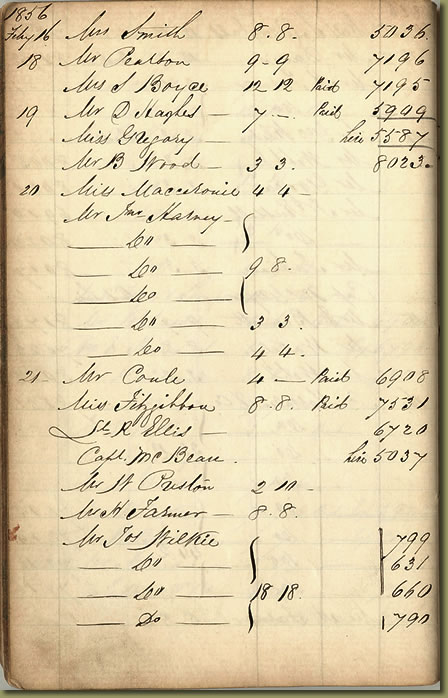 1856
Feby 16 Mrs Smith 8. 8. 5036.
18 Mr Pearson 9-9 7196
Mrs S Boyce 12 12 Paid 7195
19 Mr D Hughes — 7 . — . Paid 5999
Miss Gregory — hire 5587
Mr B Wood — 3 3. 8023.
20 Miss 4 4 —
Mr Jno Harvey —
— Do —
— Do — 9 8.
— Do —
— Do — 3 3.
— Do — 4 4.
21 Mr 4 — Paid 6908
Miss Fitzgibbon 8. 8. Paid 7531
St. R Ellis — 6720
Capt. McBean. hire 5037
Mr W Preston 2 10 -
Mr H Farmer — 8. 8.
Mr Jos Wilkie 799
— Do — 631
— Do — 18 18. 660
— Do — 790